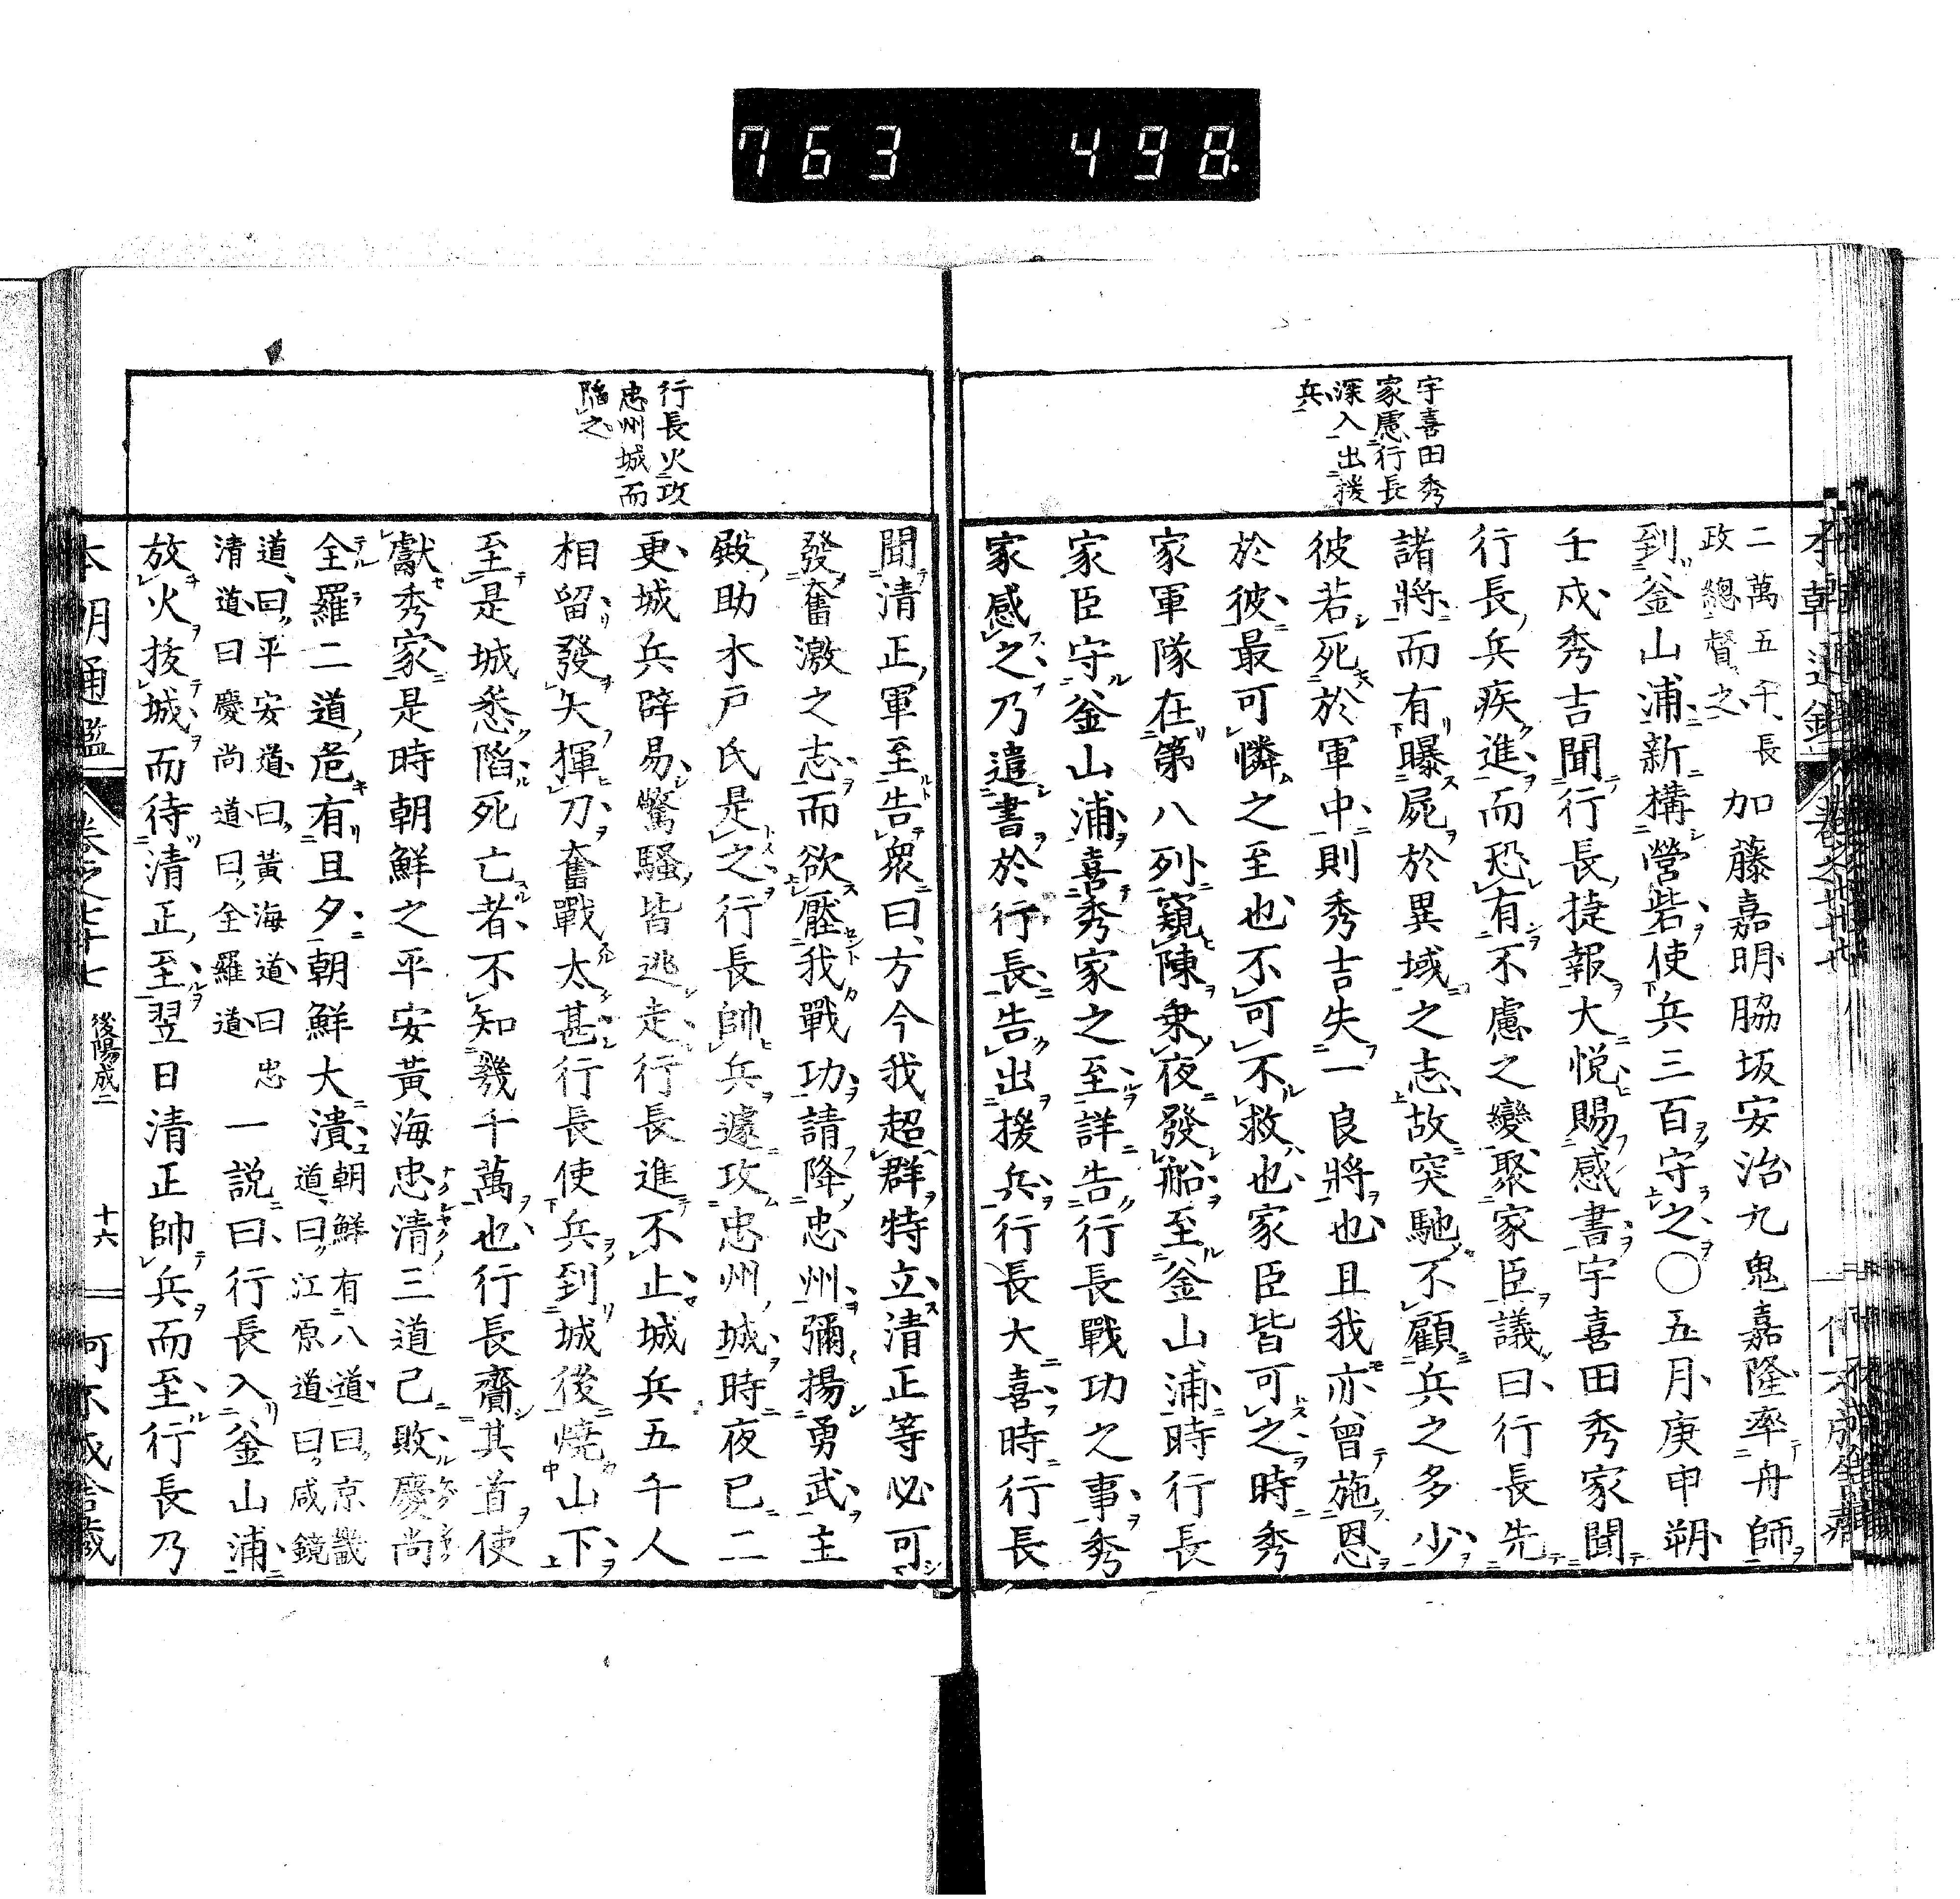 763 498.
宇喜田秀
家慮行長
深入出援
兵
二萬五千、長
政總督之 加藤嘉明脇坂安治九鬼嘉隆率舟師
到釜山浦新構營砦使兵三百守之○五月庚申朔
壬戌秀吉聞行長捷報大悅賜感書宇喜田秀家聞
行長兵疾進而恐有不慮之變聚家臣議曰行長先
諸將而有曝屍於異域之志故突馳不顧兵之多少
彼若死於軍中則秀吉失一良將也且我亦曾施恩
於彼最可憐之至也不可不救也家臣皆可之時秀
家軍隊在第八列窺陳乘夜發船至釜山浦時行長
家臣守釜山浦喜秀家之至詳告行長戰功之事秀
家感之乃遣書於行長告出援兵行長大喜時行長
行長火攻
忠州城而
陷之
聞清正軍至告衆曰方今我超群特立清正等必可
發奮激之志而欲壓我戰功請降忠州彌揚勇武主
殿助木戶氏是之行長帥兵遽攻忠州城時夜已二
更城兵辟易驚騷皆逃走行長進不止城兵五千人
相留發矢揮刀奮戰太甚行長使兵到城後燒山下
至是城悉陷死亡者不知幾千萬也行長齎其首使
獻秀家是時朝鮮之平安黃海忠清三道已敗慶尚
全羅二道危有旦夕朝鮮大潰 朝鮮有八道曰京畿
道曰江原道曰咸鏡
道曰平安道曰黃海道曰忠
清道曰慶尚道曰全羅道 一說曰行長入釜山浦
放火拔城而待清正至翌日清正帥兵而至行長乃
本朝通鑑 卷之七十七 後陽成二 十六